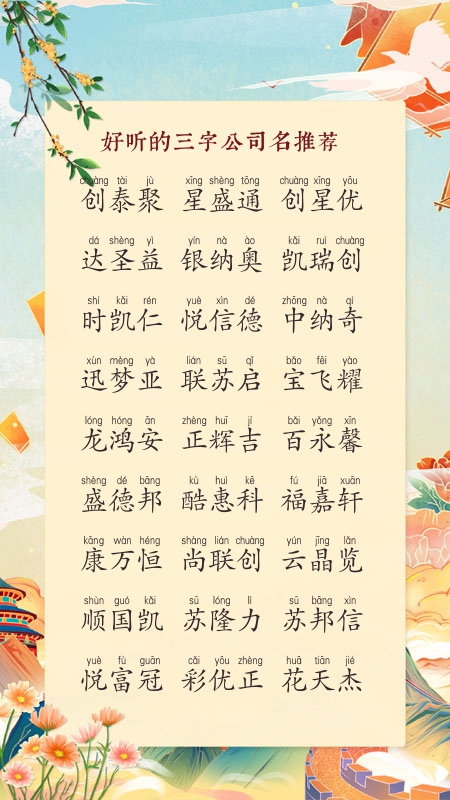 好听的三字公司名推荐
chuàng tài jù xīng shèng tōng chuàng xīng yōu
创泰聚 星盛通 创星优
dá shèng yì yín nà ào kǎi ruì chuàng
达圣益 银纳奥 凯瑞创
shí kǎi rén yuè xìn dé zhōng nà qí
时凯仁 悦信德 中纳奇
xùn mèng yà lián sū qǐ bǎo fēi yào
迅梦亚 联苏启 宝飞耀
lóng hóng ān zhèng huī jí bǎi yǒng xīn
龙鸿安 正辉吉 百永馨
shèng dé bāng kù huì kē fú jiā xuān
盛德邦 酷惠科 福嘉轩
kāng wàn héng shàng lián chuàng yún jīng lǎn
康万恒 尚联创 云晶览
shùn guó kǎi sū lóng lì sū bāng xìn
顺国凯 苏隆力 苏邦信
yuè fù guān cǎi yōu zhèng huā tiān jié
悦富冠 彩优正 花天杰